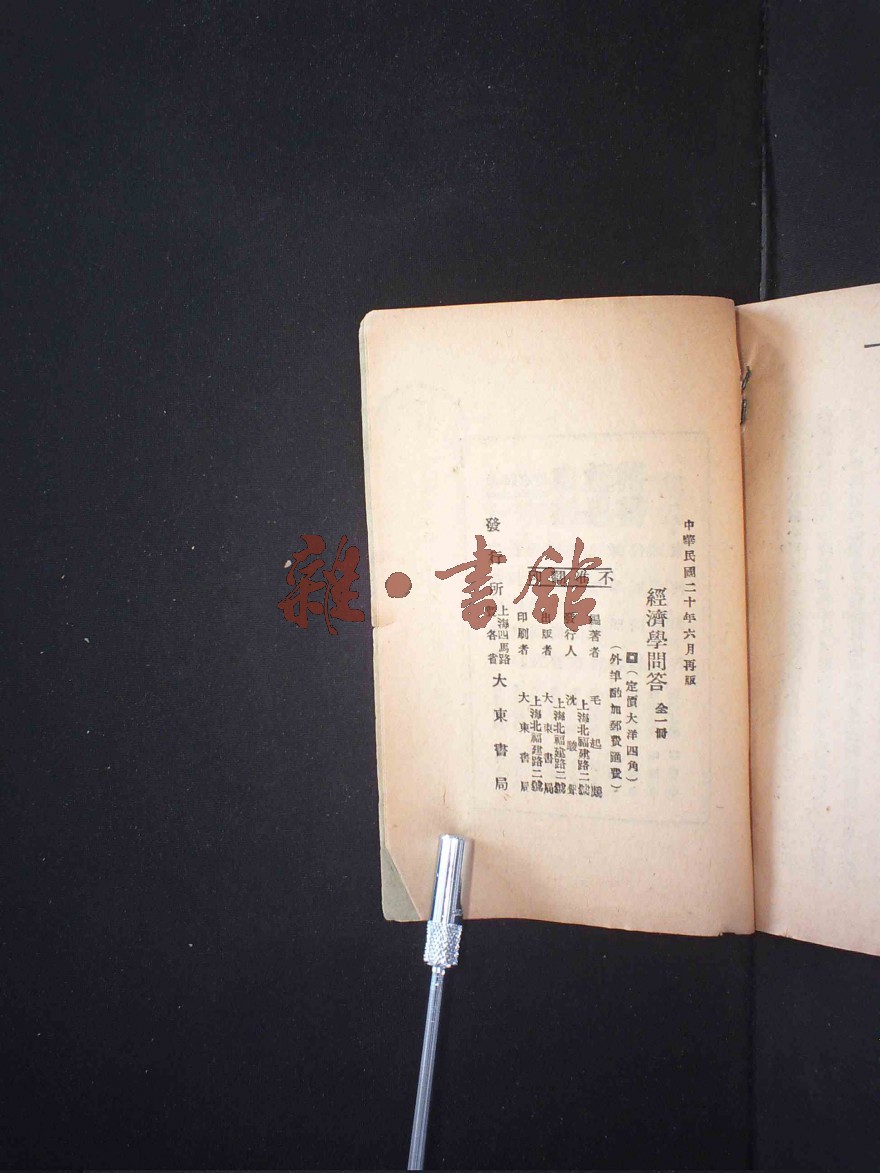 中華民國二十年六月再版
經濟學問答 全一冊
(定價大洋四角)
(外埠酌加郵費匯費)
不准翻印
編著者 毛起
上海北福建路二號
發行人 沈駿聲
上海北福建路二號
出版者 大東書局
上海北福建路二號
印刷者 大東書局
發行所 上海四馬路 各省 大東書局
雜·書館